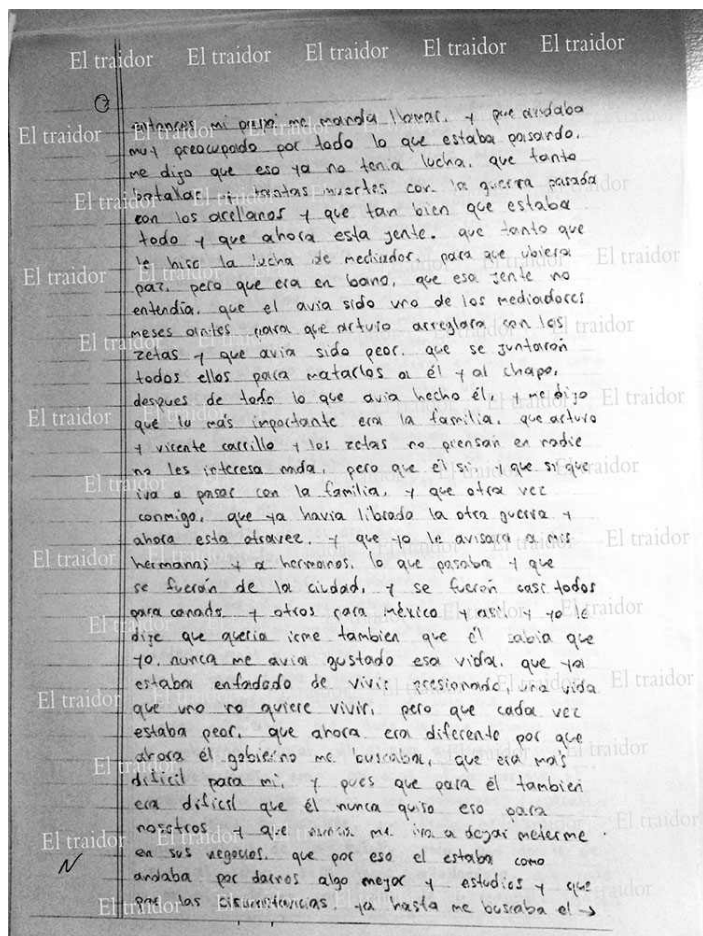 El traidor El traidor El traidor El traidor El traidor
7
entonces mi papá me manda llamar. y que andaba
muy preocupado por todo lo que estaba pasando.
me dijo que eso ya no tenia lucha. que tanto
batallar y tantas muertes con la guerra pasada
con los arellanos y que tan bien que estaba
todo y que ahora esta jente. que tanto que
le hiso la lucha de mediador. para que ubiera
paz. pero que era en bano, que esa jente no
entendía. que el avia sido uno de los mediadores
meses antes para que arturo arreglara con los
zetas y que avia sido peor. que se juntaron
todos ellos para matarlos a él y al chapo.
despues de todo lo que avia hecho él. y me dijo
que lo más importante era la familia. que arturo
y vicente carrillo y los zetas no piensan en nadie
no les interesa nada. pero que él si. y que si que
iva a pasar con la familia. y que otra vez
conmigo. que ya havia librado la otra guerra y
ahora esta otravez. y que yo le avisara a mis
hermanas y a hermanos. lo que pasaba y que
se fueran de la ciudad. y se fueron casi todos
para canada y otros para méxico y asi y yo le
dije que queria irme tambien que él sabia que
yo. nunca me avia gustado esa vida. que ya
estaba enfadado de vivir presionado, una vida
que uno no quiere vivir. pero que cada vez
estaba peor. que ahora era diferente por que
ahora él gobierno me buscaba. que era más
dificil para mi. y pues que para él tambien
era dificil que él nunca quiso eso para
nosotros y que nunca me iva a dejar meterme
en sus negocios. que por eso el estaba como
andaba por darnos algo mejor y estudios y que
por las cisunstancias. ya hasta me buscaba el →
N